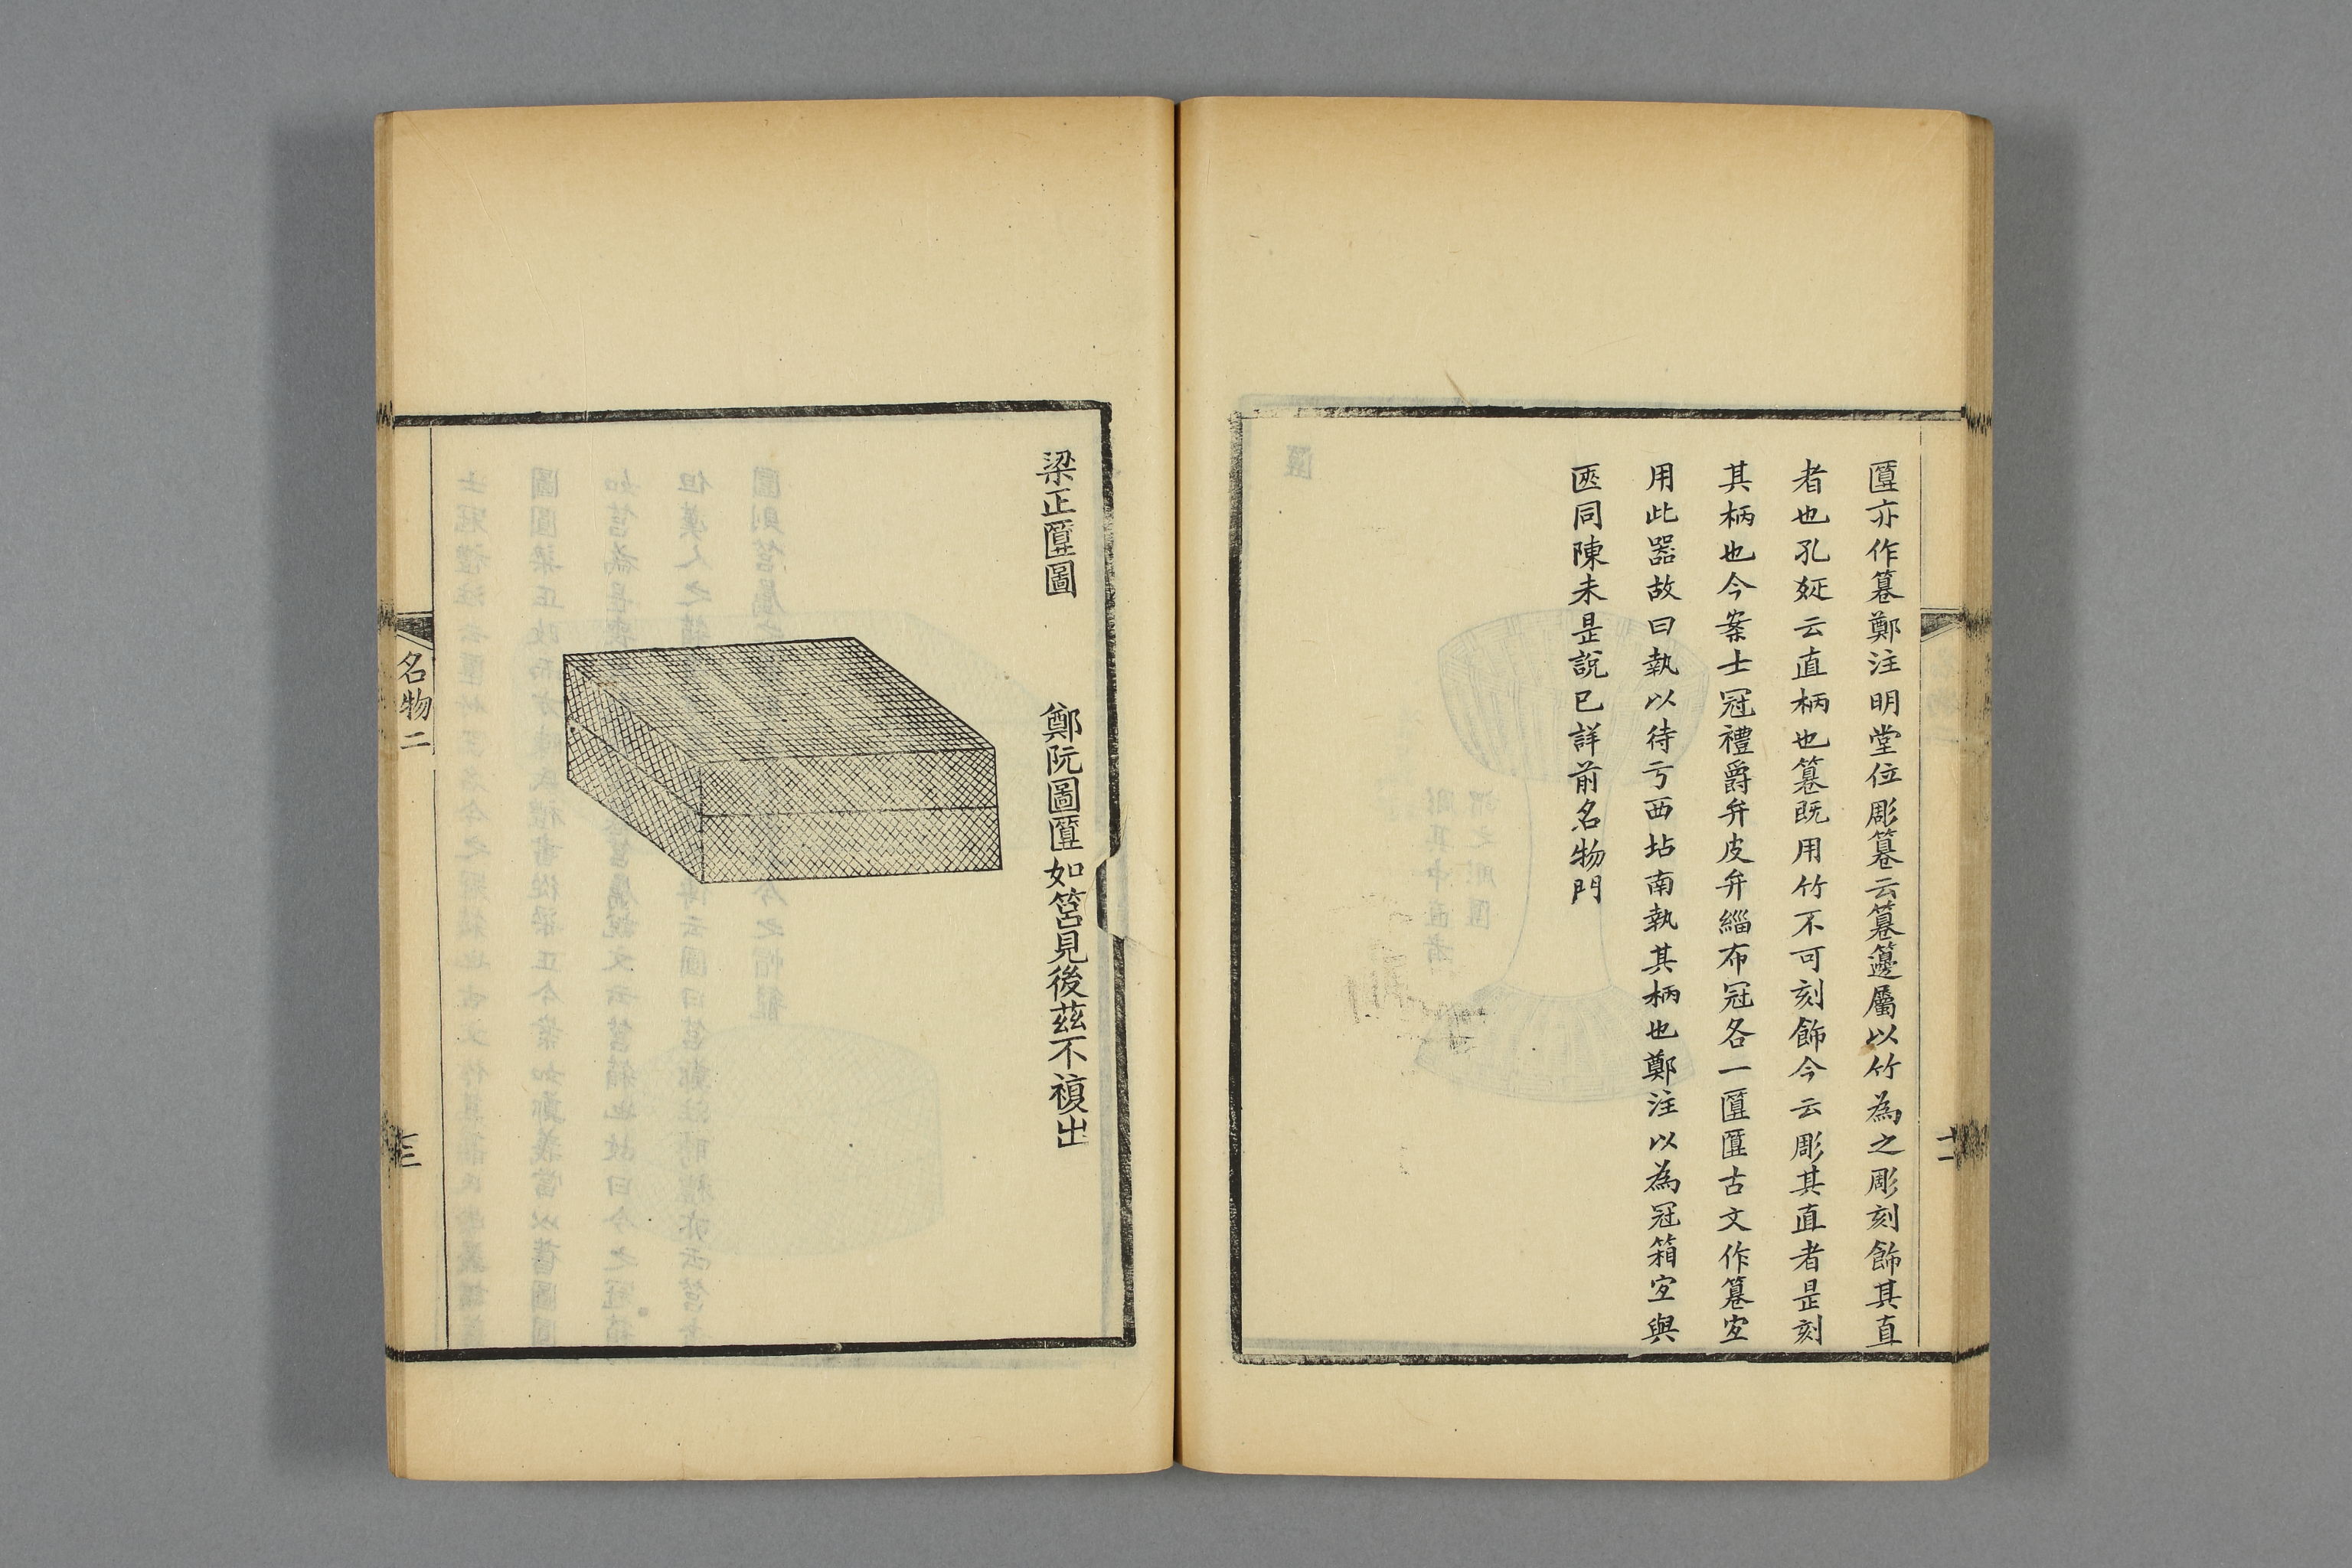 匴亦作篹鄭注明堂位彫篹云篹籩屬以竹為之彫刻飾其直
者也孔疏云直柄也篹既用竹不可刻飾今云彫其直者是刻
其柄也今案士冠禮爵弁皮弁緇布冠各一匴匴古文作篹定
用此器故曰執以待于西坫南執其柄也鄭注以為冠箱定與
匧同陳未是說已詳前名物門
十二
梁正匴圖
鄭阮圖匴如筥見後茲不複出
名物二
十三